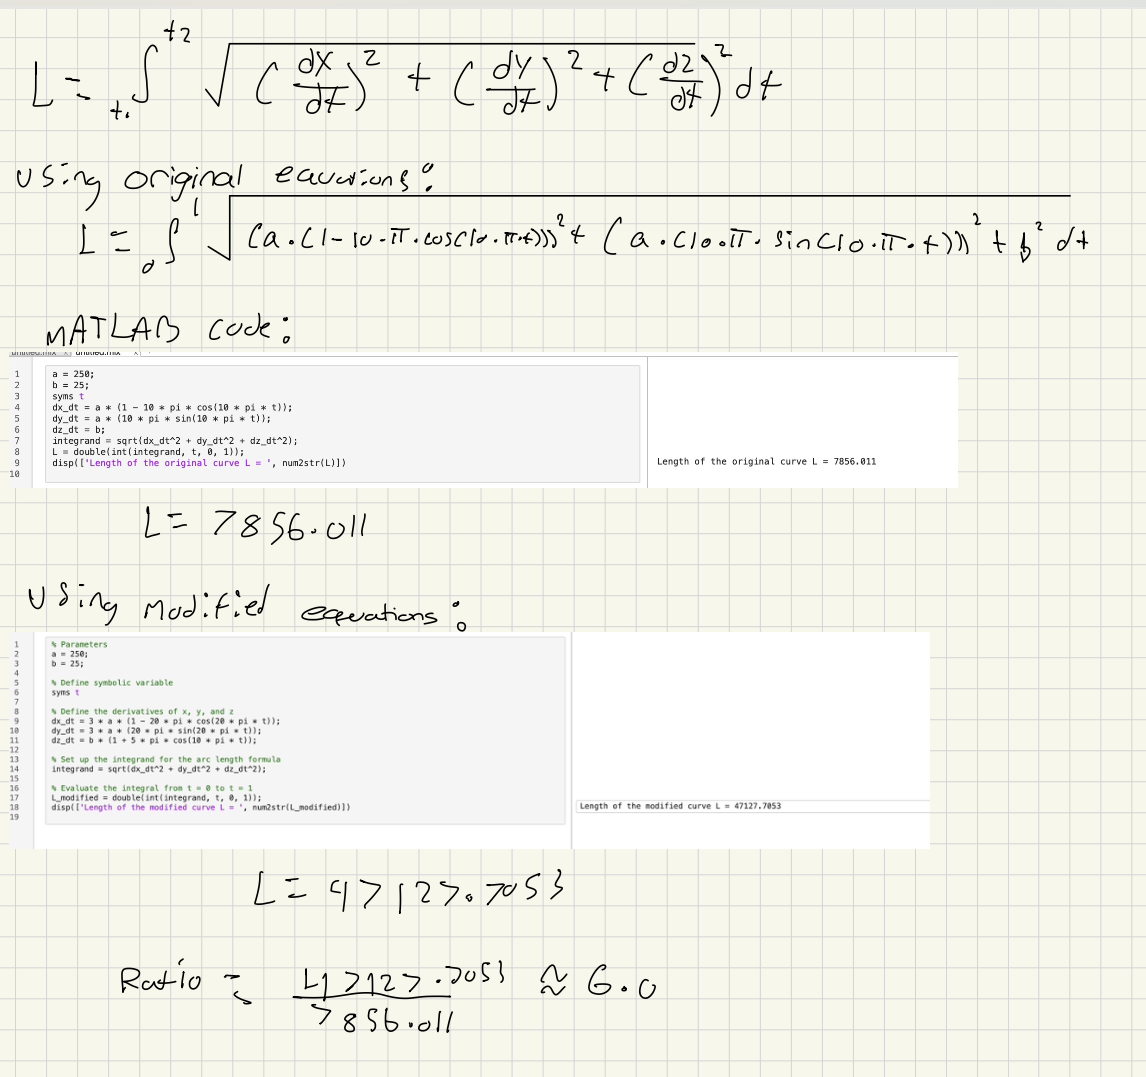 L = ∫_{t₁}^{t2} √( (dx/dt)² + (dy/dt)² + (dz/dt)² ) dt
Using original equations:
L = ∫_0^1 √( (a·(1-10·π·cos(10·π·t)))² + (a·(10·π·sin(10·π·t)))² + b² dt
MATLAB code:
untitled.mlx untitled.mlx
1 a = 250;
2 b = 25;
3 syms t
4 dx_dt = a * (1 - 10 * pi * cos(10 * pi * t));
5 dy_dt = a * (10 * pi * sin(10 * pi * t));
6 dz_dt = b;
7 integrand = sqrt(dx_dt^2 + dy_dt^2 + dz_dt^2);
8 L = double(int(integrand, t, 0, 1));
9 disp(['Length of the original curve L = ', num2str(L)]) Length of the original curve L = 7856.011
10
L = 7856.011
Using Modified equations:
1 % Parameters
2 a = 250;
3 b = 25;
4
5 % Define symbolic variable
6 syms t
7
8 % Define the derivatives of x, y, and z
9 dx_dt = 3 * a * (1 - 20 * pi * cos(20 * pi * t));
10 dy_dt = 3 * a * (20 * pi * sin(20 * pi * t));
11 dz_dt = b * (1 + 5 * pi * cos(10 * pi * t));
12
13 % Set up the integrand for the arc length formula
14 integrand = sqrt(dx_dt^2 + dy_dt^2 + dz_dt^2);
15
16 % Evaluate the integral from t = 0 to t = 1
17 L_modified = double(int(integrand, t, 0, 1));
18 disp(['Length of the modified curve L = ', num2str(L_modified)]) Length of the modified curve L = 47127.7053
19
L = 47127.7053
Ratio = 47127.7053 / 7856.011 ≈ 6.0